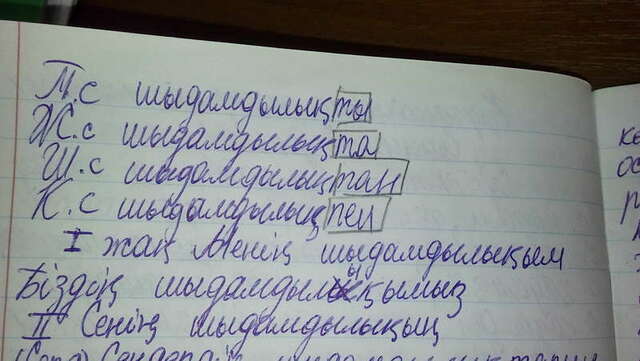 Т.с шыдамдылықты
Ж.с шыдамдылықта
Ш.с шыдамдылықтан
К.с шыдамдылықпен
I жақ Менің шыдамдылықым
Біздің шыдамдылықымыз
II Сенің шыдамдылықың